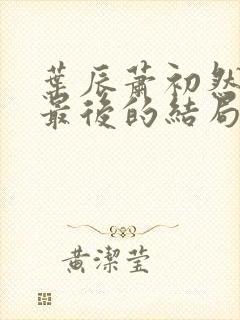 葉辰蕭初然
最後的結局
黃潔瑩